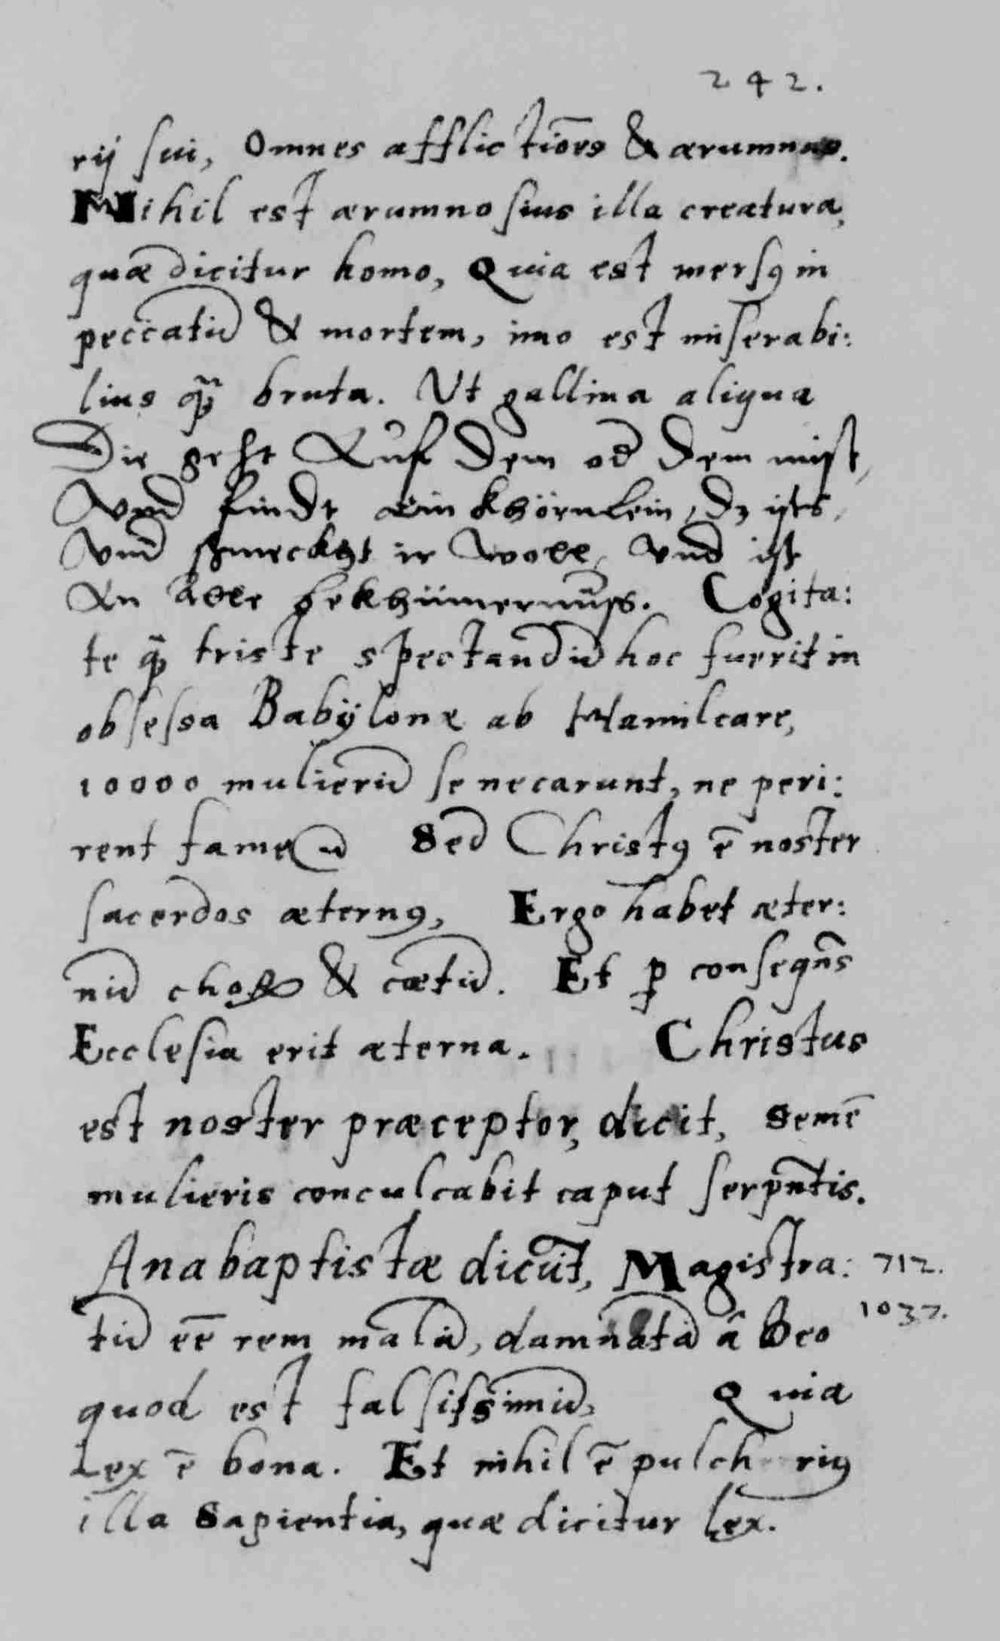 242.
rij sui, Omnes afflictiões & ærumnas.
Nihil est ærumnosius illa creatura,
quæ dicitur homo, Quia est mersꝰ in
peccatū & mortem, imo est miserabi:
lius qꝫ̃ bruta. Ut gallina aliqua
Die geht Auf dem od dem mist,
vnd findt ein khörnlein, dz ists,
vnd schmeckht ir woll, vnd ist
An alle bekhümernuss. Cogita:
te qꝫ̃ triste spectandū hoc fuerit in
obsessa Babÿlone ab Hamilcare,
10000 mulierū se necarunt, ne peri:
rent fame Sed Christꝰ ē noster
sacerdos æternꝰ, Ergo habet æter:
nū choꝝ & cœtū. Et ꝑ conseqñs
Ecclesia erit æterna. Christus
est noster præceptor, dicit, Semē
mulieris conculcabit caput serpñtis.
Anabaptistæ dicūt, Magistra: 712.
tū eē rem malā, damnatā â Deo 1037.
quod est falsissimū, Quia
Lex ē bona. Et nihil ē pulchriꝰ
illa Sapientia, quæ dicitur lex.